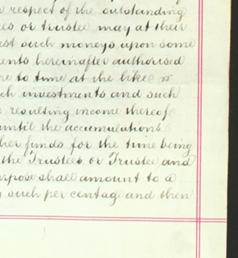 respect of the outstanding
or trustee may at their
such moneys upon some
hereinafter authorised
to time at the like
investments and such
resulting income thereof
until the accumulations
funds for the time being
the Trustees or Trustee and
shall amount to a
such per centage and then